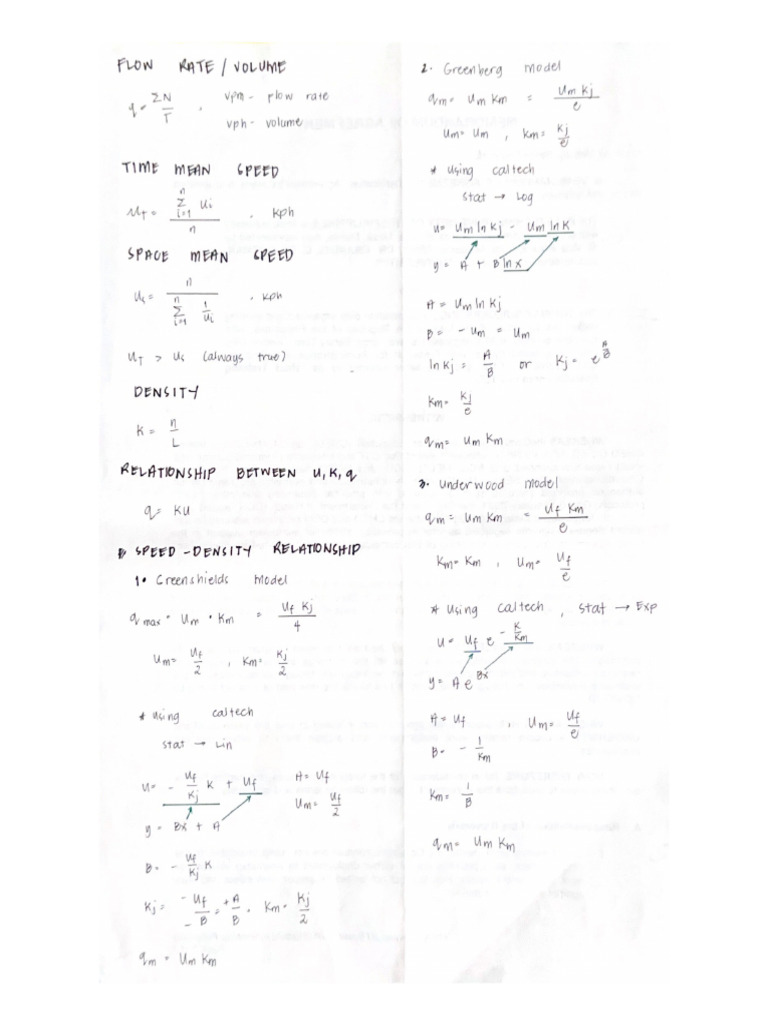 FLOW RATE / VOLUME
q = ΣN / T , vpm - flow rate
vph - volume
TIME MEAN SPEED
u_T = Σ(i=1 to n) u_i / n , kph
SPACE MEAN SPEED
u_s = n / Σ(i=1 to n) 1/u_i , kph
u_T > u_s (always true)
DENSITY
K = n / L
RELATIONSHIP BETWEEN u, K, q
q = Ku
SPEED - DENSITY RELATIONSHIP
1. Greenshields Model
q max = Um • Km = Uf Kj / 4
Um = Uf / 2 , Km = Kj / 2
* using caltech
stat → Lin
u = - Uf/Kj K + Uf
A = Uf
Um = Uf / 2
y = Bx + A
B = - Uf/Kj K
Kj = -Uf / -B = +A / B , Km = Kj / 2
qm = Um Km
2. Greenberg model
qm = Um Km = Um Kj / e
Um = Um , Km = Kj / e
* using caltech
stat → Log
u = Um ln Kj - Um ln K
y = A + B ln x
A = Um ln Kj
B = - Um = Um
ln Kj = A / B or Kj = e^(A/B)
Km = Kj / e
qm = Um Km
3. Underwood model
qm = Um Km = Uf Km / e
Km = Km , Um = Uf / e
* using caltech , stat → Exp
u = Uf e^(-K/Km)
y = A e^(Bx)
A = Uf , Um = Uf / e
B = - 1 / Km
Km = 1 / B
qm = Um Km